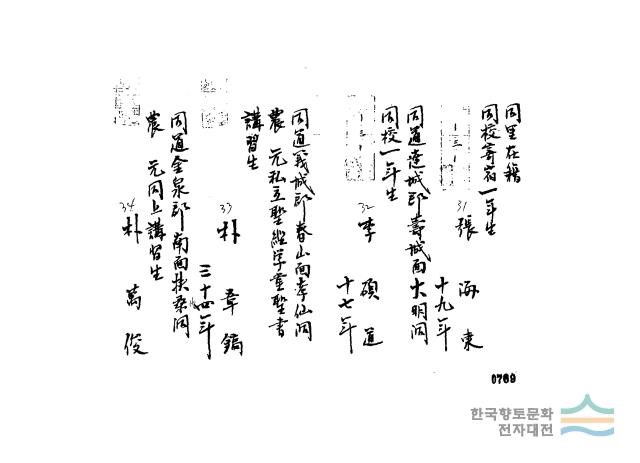 同里在籍
同校寄宿一年生
31 張海東
十九年
同道達城郡壽城面大明洞
同校一年生
32 李碩道
十七年
同道義城郡春山面孝仙洞
農 元私立聖經学童聖書
講習生
33 朴章鎬
三十四年
同道金泉郡南面扶桑洞
農 元同上講習生
34 朴萬俊
0769
한국향토문화
전자대전